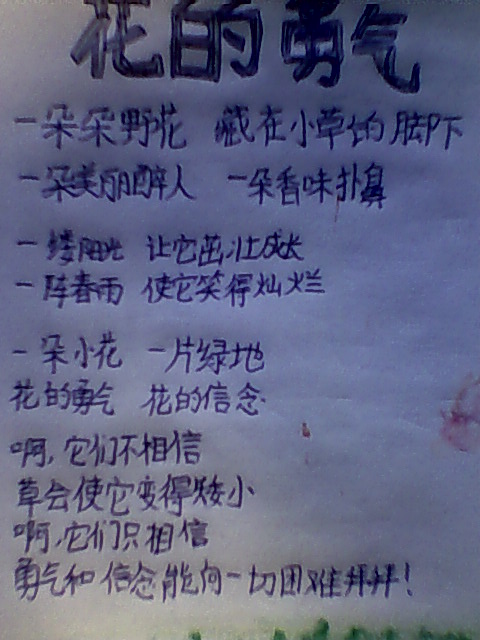 花的勇气
一朵朵野花 藏在小草的脚下
一朵美丽醉人 一朵香味扑鼻
一缕阳光 让它茁壮成长
一阵春雨 使它笑得灿烂
一朵小花 一片绿地
花的勇气 花的信念
啊,它们不相信
草会使它变得矮小
啊,它们只相信
勇气和信念能向一切困难拜拜!